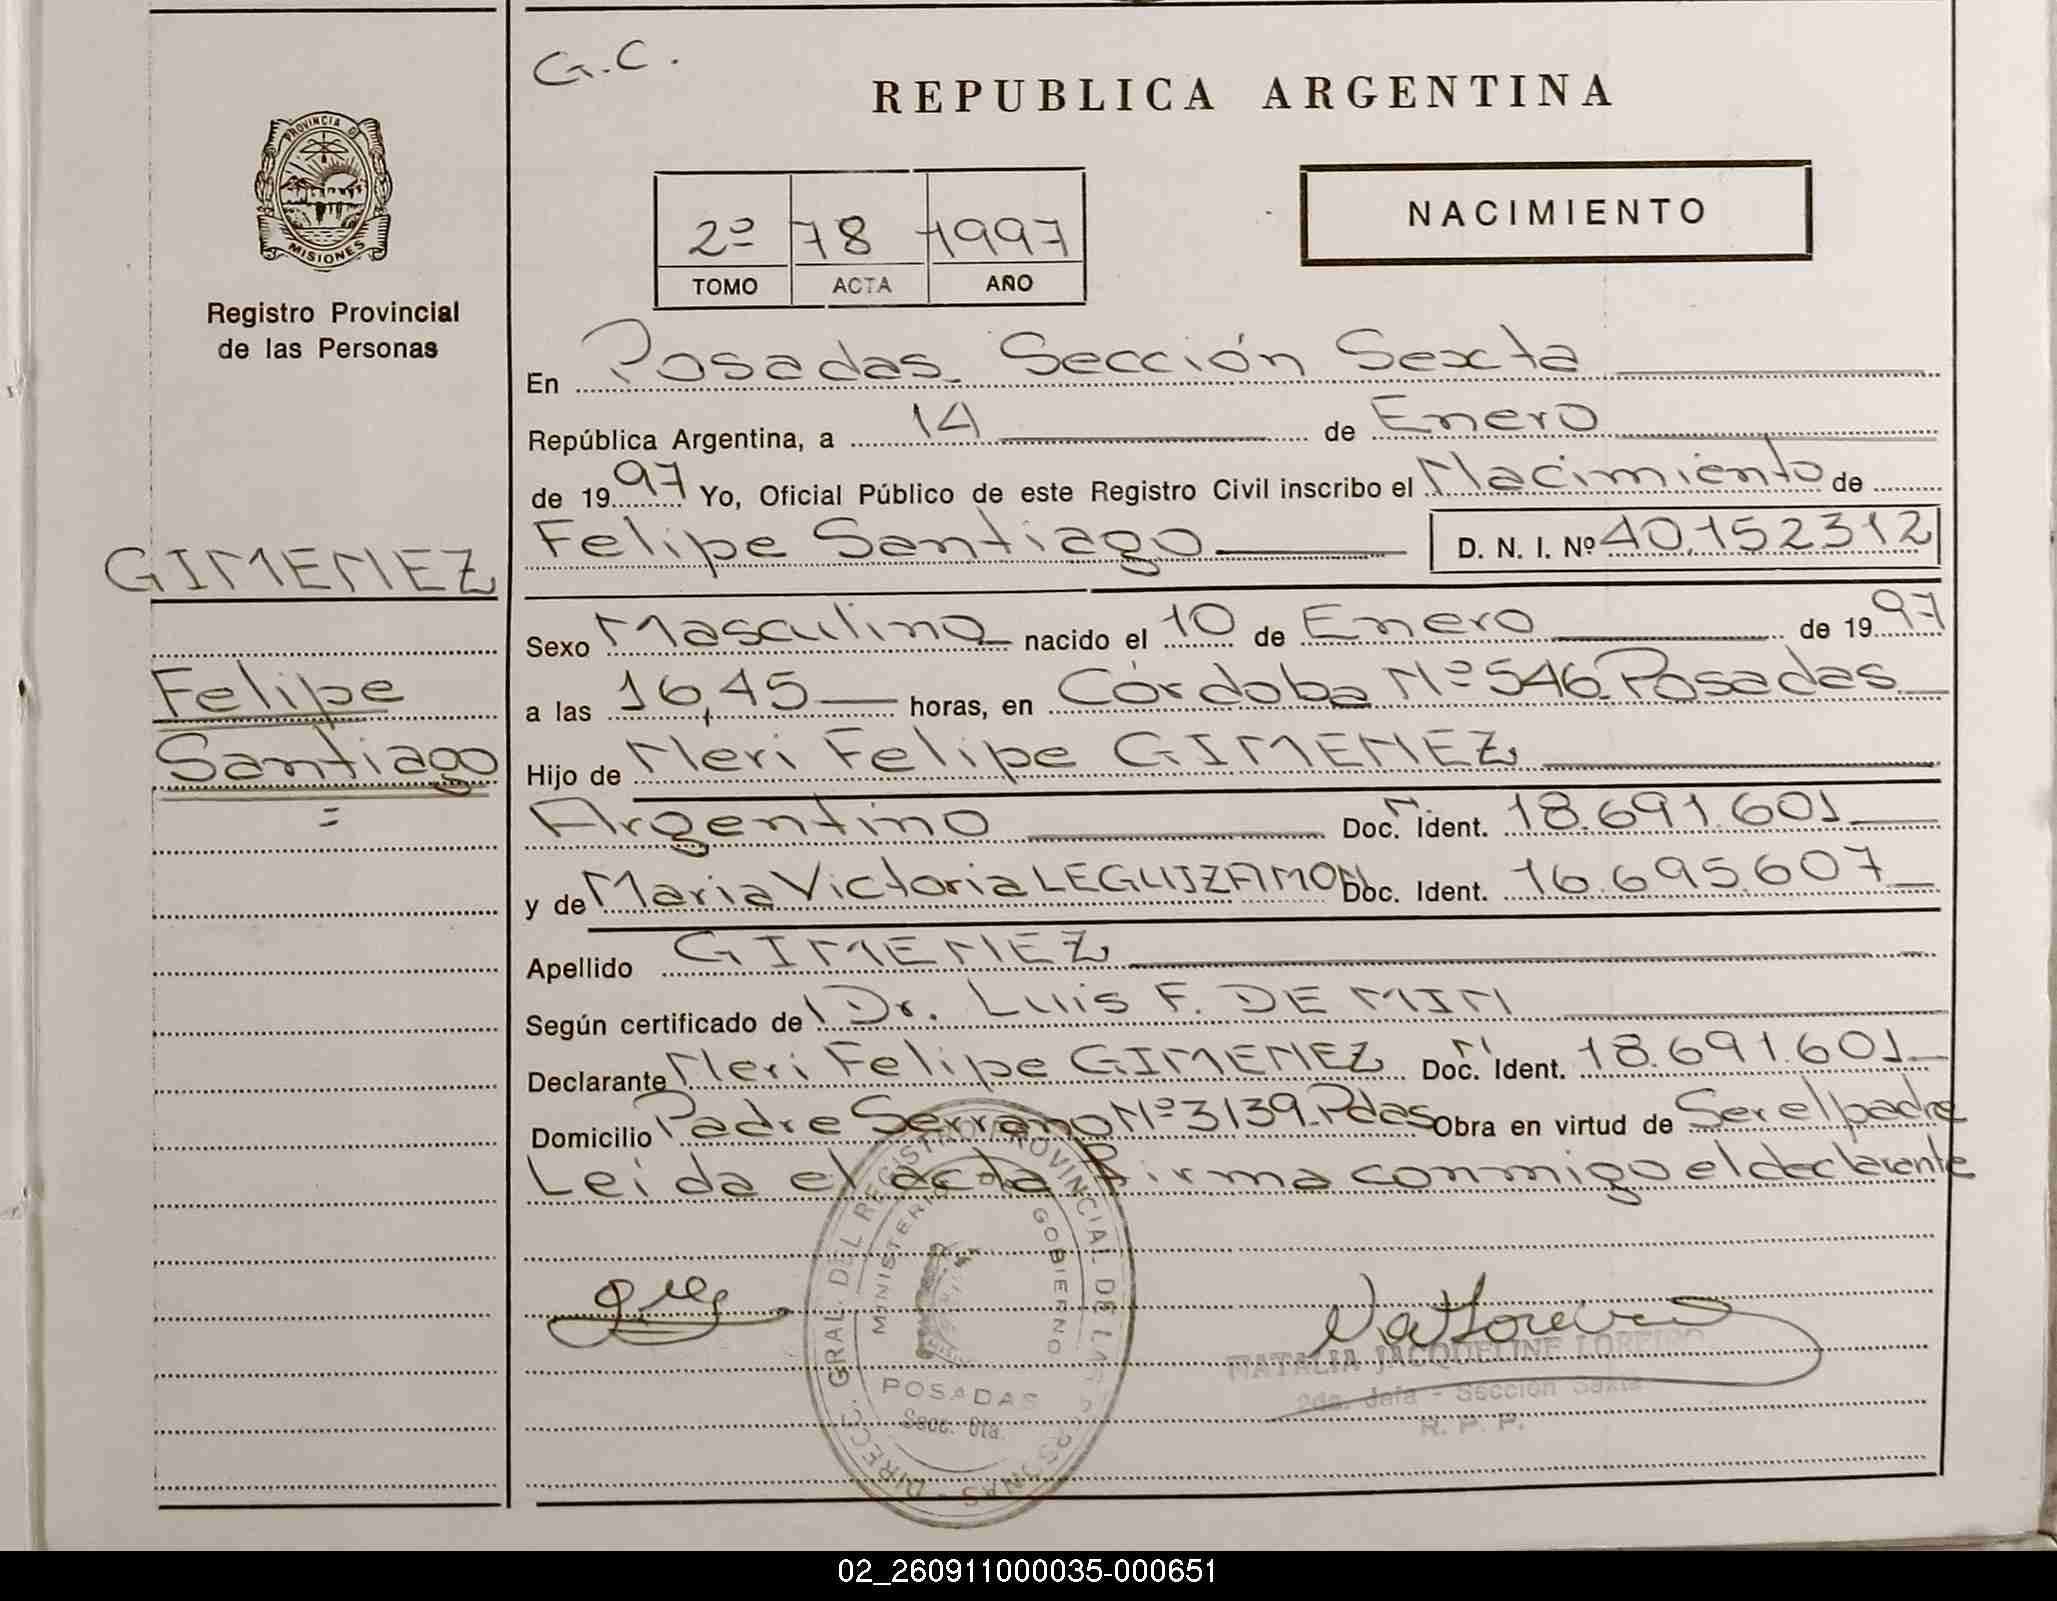 G.C.
REPUBLICA ARGENTINA
PROVINCIA D
MISIONES
Registro Provincial
de las Personas
NACIMIENTO
2º 78 1997
TOMO ACTA AÑO
En Posadas Sección Sexta
República Argentina, a 14 de Enero
de 1997 Yo, Oficial Público de este Registro Civil inscribo el Nacimiento de
Felipe Santiago D. N. I. Nº 40.152312
GIMENEZ
Felipe
Santiago
=
Sexo Masculino nacido el 10 de Enero de 1997
a las 16,45 horas, en Córdoba Nº 546. Posadas
Hijo de Neri Felipe GIMENEZ
Argentino Doc. N Ident. 18.691.601
y de Maria Victoria LEGUIZAMON Doc. Ident. 16.695.607
Apellido GIMENEZ
Según certificado de Dr. Luis F. DE MIN
Declarante Neri Felipe GIMENEZ Doc. N Ident. 18.691.601
Domicilio Padre Serrano Nº 3139. Pdas Obra en virtud de Ser el padre
Leida el acta firma conmigo el declarante
DIRECC. GRAL. DEL REGISTRO PROVINCIAL DE LAS PERSONAS
MINISTERIO DE GOBIERNO
POSADAS
Secc. 6ta.
NATALIA JACQUELINE LOREIRO
2da. Jefa - Sección Sexta
R. P. P.
02_260911000035-000651